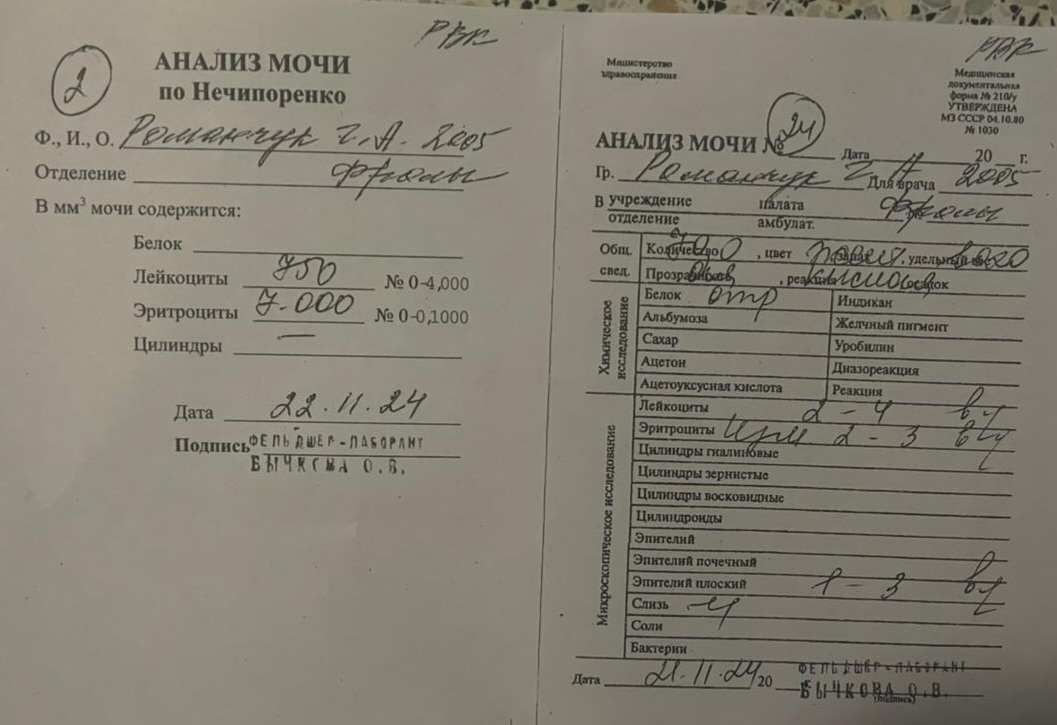 РВК
2
АНАЛИЗ МОЧИ
по Нечипоренко
Ф., И., О. Романчук Г. А. 2005
Отделение
В мм³ мочи содержится:
Белок
Лейкоциты 750 № 0-4,000
Эритроциты 7.000 № 0-0,1000
Цилиндры —
Дата 22.11.24
Подпись ФЕЛЬДШЕР-ЛАБОРАНТ
БЫЧКОВА О.В.
РВК
Министерство
здравоохранения
Медицинская
документальная
форма № 210/у
УТВЕРЖДЕНА
МЗ СССР 04.10.80
№ 1030
АНАЛИЗ МОЧИ № 24 Дата 20 г.
Гр. Романчук Г А Для врача 2005
В учреждение палата
отделение амбулат.
Общ. свед.
Количество , цвет , удельный
Прозрачность , реакция кислая осадок
Химическое исследование
Белок отр Индикан
Альбумоза Желчный пигмент
Сахар Уробилин
Ацетон Диазореакция
Ацетоуксусная кислота Реакция
Микроскопическое исследование
Лейкоциты 2-4
Эритроциты изм 2-3
Цилиндры гиалиновые
Цилиндры зернистые
Цилиндры восковидные
Цилиндроиды
Эпителий
Эпителий почечный
Эпителий плоский 1-3
Слизь
Соли
Бактерии
Дата 21.11.24 20
ФЕЛЬДШЕР-ЛАБОРАНТ
БЫЧКОВА О.В.
(подпись)